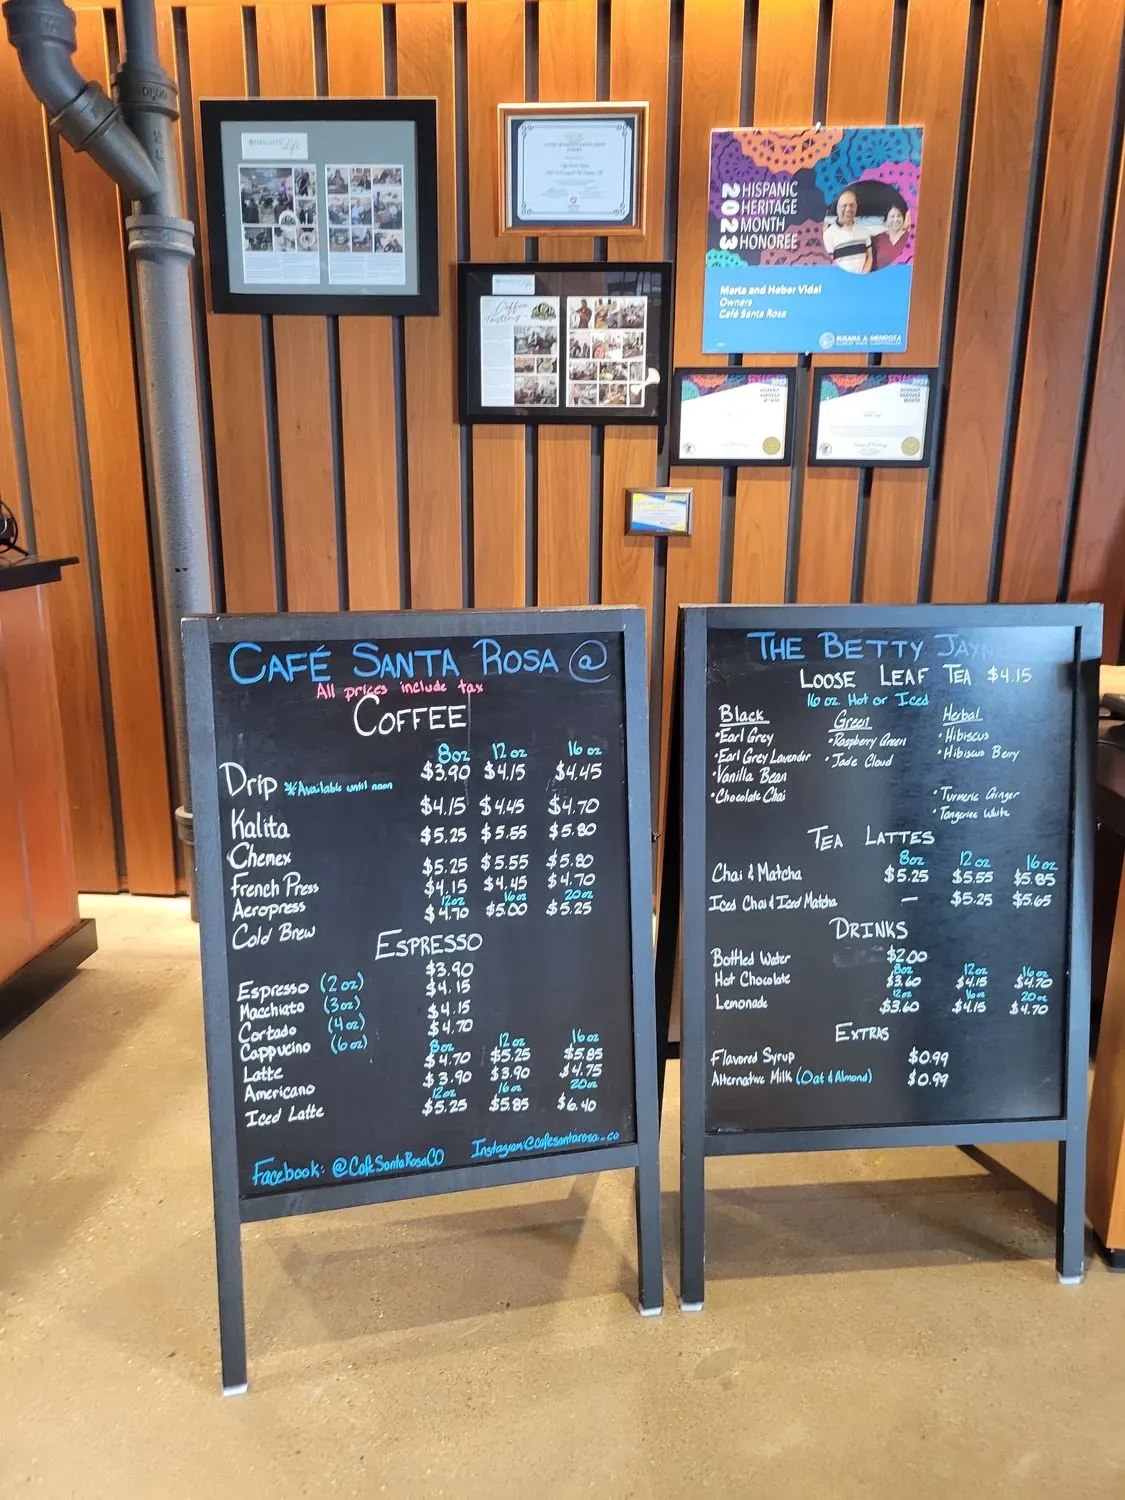 2023 HISPANIC
HERITAGE
MONTH
HONOREE
Marta and Heber Vidal
Owners
Café Santa Rosa
SUSANA A. MENDOZA
Coffee
CAFÉ SANTA ROSA @
All prices include tax
COFFEE
8oz 12 oz 16 oz
Drip *Available until noon $3.90 $4.15 $4.45
Kalita $4.15 $4.45 $4.70
Chemex $5.25 $5.55 $5.80
French Press $5.25 $5.55 $5.80
Aeropress $4.15 $4.45 $4.70
12oz 16oz 20oz
Cold Brew $4.70 $5.00 $5.25
ESPRESSO
Espresso (2 oz) $3.90
Macchiato (3oz) $4.15
Cortado (4oz) $4.15
Cappucino (6oz) $4.70
8oz 12oz 16oz
Latte $4.70 $5.25 $5.85
Americano $3.90 $3.90 $4.75
12oz 16oz 20oz
Iced Latte $5.25 $5.85 $6.40
Facebook: @CafeSantaRosaCO Instagram:@cafesantarosa_co
THE BETTY JAYNE
LOOSE LEAF TEA $4.15
16 oz. Hot or Iced
Black Green Herbal
•Earl Grey •Raspberry Green •Hibiscus
•Earl Grey Lavender •Jade Cloud •Hibiscus Berry
•Vanilla Bean
•Chocolate Chai •Turmeric Ginger
•Tangerine White
TEA LATTES
8oz 12oz 16oz
Chai & Matcha $5.25 $5.55 $5.85
Iced Chai & Iced Matcha — $5.25 $5.65
DRINKS
Bottled Water $2.00
8oz 12oz 16oz
Hot Chocolate $3.60 $4.15 $4.70
12oz 16oz 20oz
Lemonade $3.60 $4.15 $4.70
EXTRAS
Flavored Syrup $0.99
Alternative Milk (Oat & Almond) $0.99